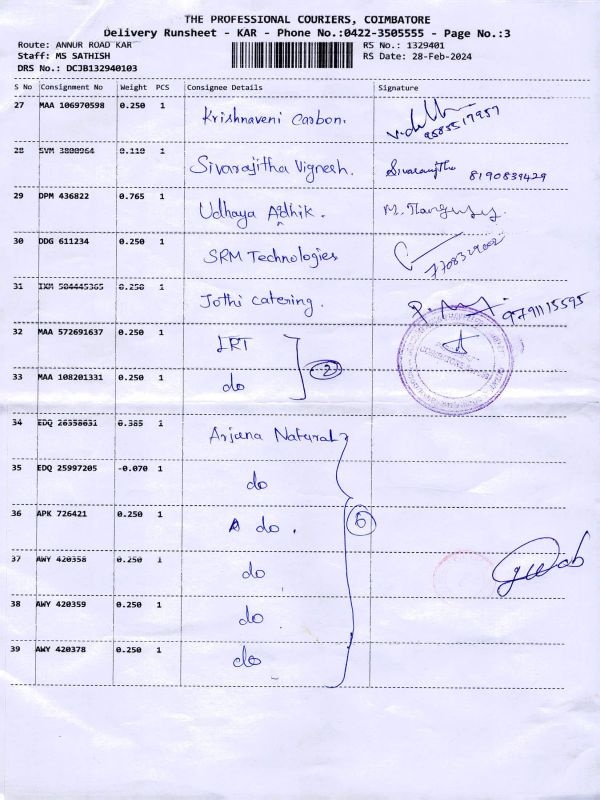 THE PROFESSIONAL COURIERS, COIMBATORE
Delivery Runsheet - KAR - Phone No.:0422-3505555 - Page No.:3
Route: ANNUR ROAD KAR
RS No.: 1329401
Staff: MS SATHISH
RS Date: 28-Feb-2024
DRS No.: DCJB132940103
S No Consignment No Weight PCS Consignee Details Signature
27 MAA 106970598 0.250 1 Krishnaveni Carbon.
9585517957
28 SVM 3808964 0.110 1 Sivarajitha Vignesh. 8190839429
29 DPM 436822 0.765 1 Udhaya Adhik.
30 DDG 611234 0.250 1 SRM Technologies
31 0.250 1 Jothi catering. 9791115595
32 MAA 572691637 0.250 1 LRT
2
33 MAA 108201331 0.250 1 do
34 EDQ 26358631 0.385 1 Arjuna Natural
35 EDQ 25997205 -0.070 1 do
36 APK 726421 0.250 1 do.
6
37 AWY 420358 0.250 1 do
38 AWY 420359 0.250 1 do
39 AWY 420378 0.250 1 do